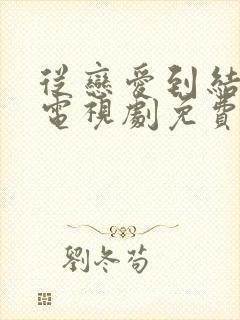 從戀愛到結
電視劇免費
劉冬苟